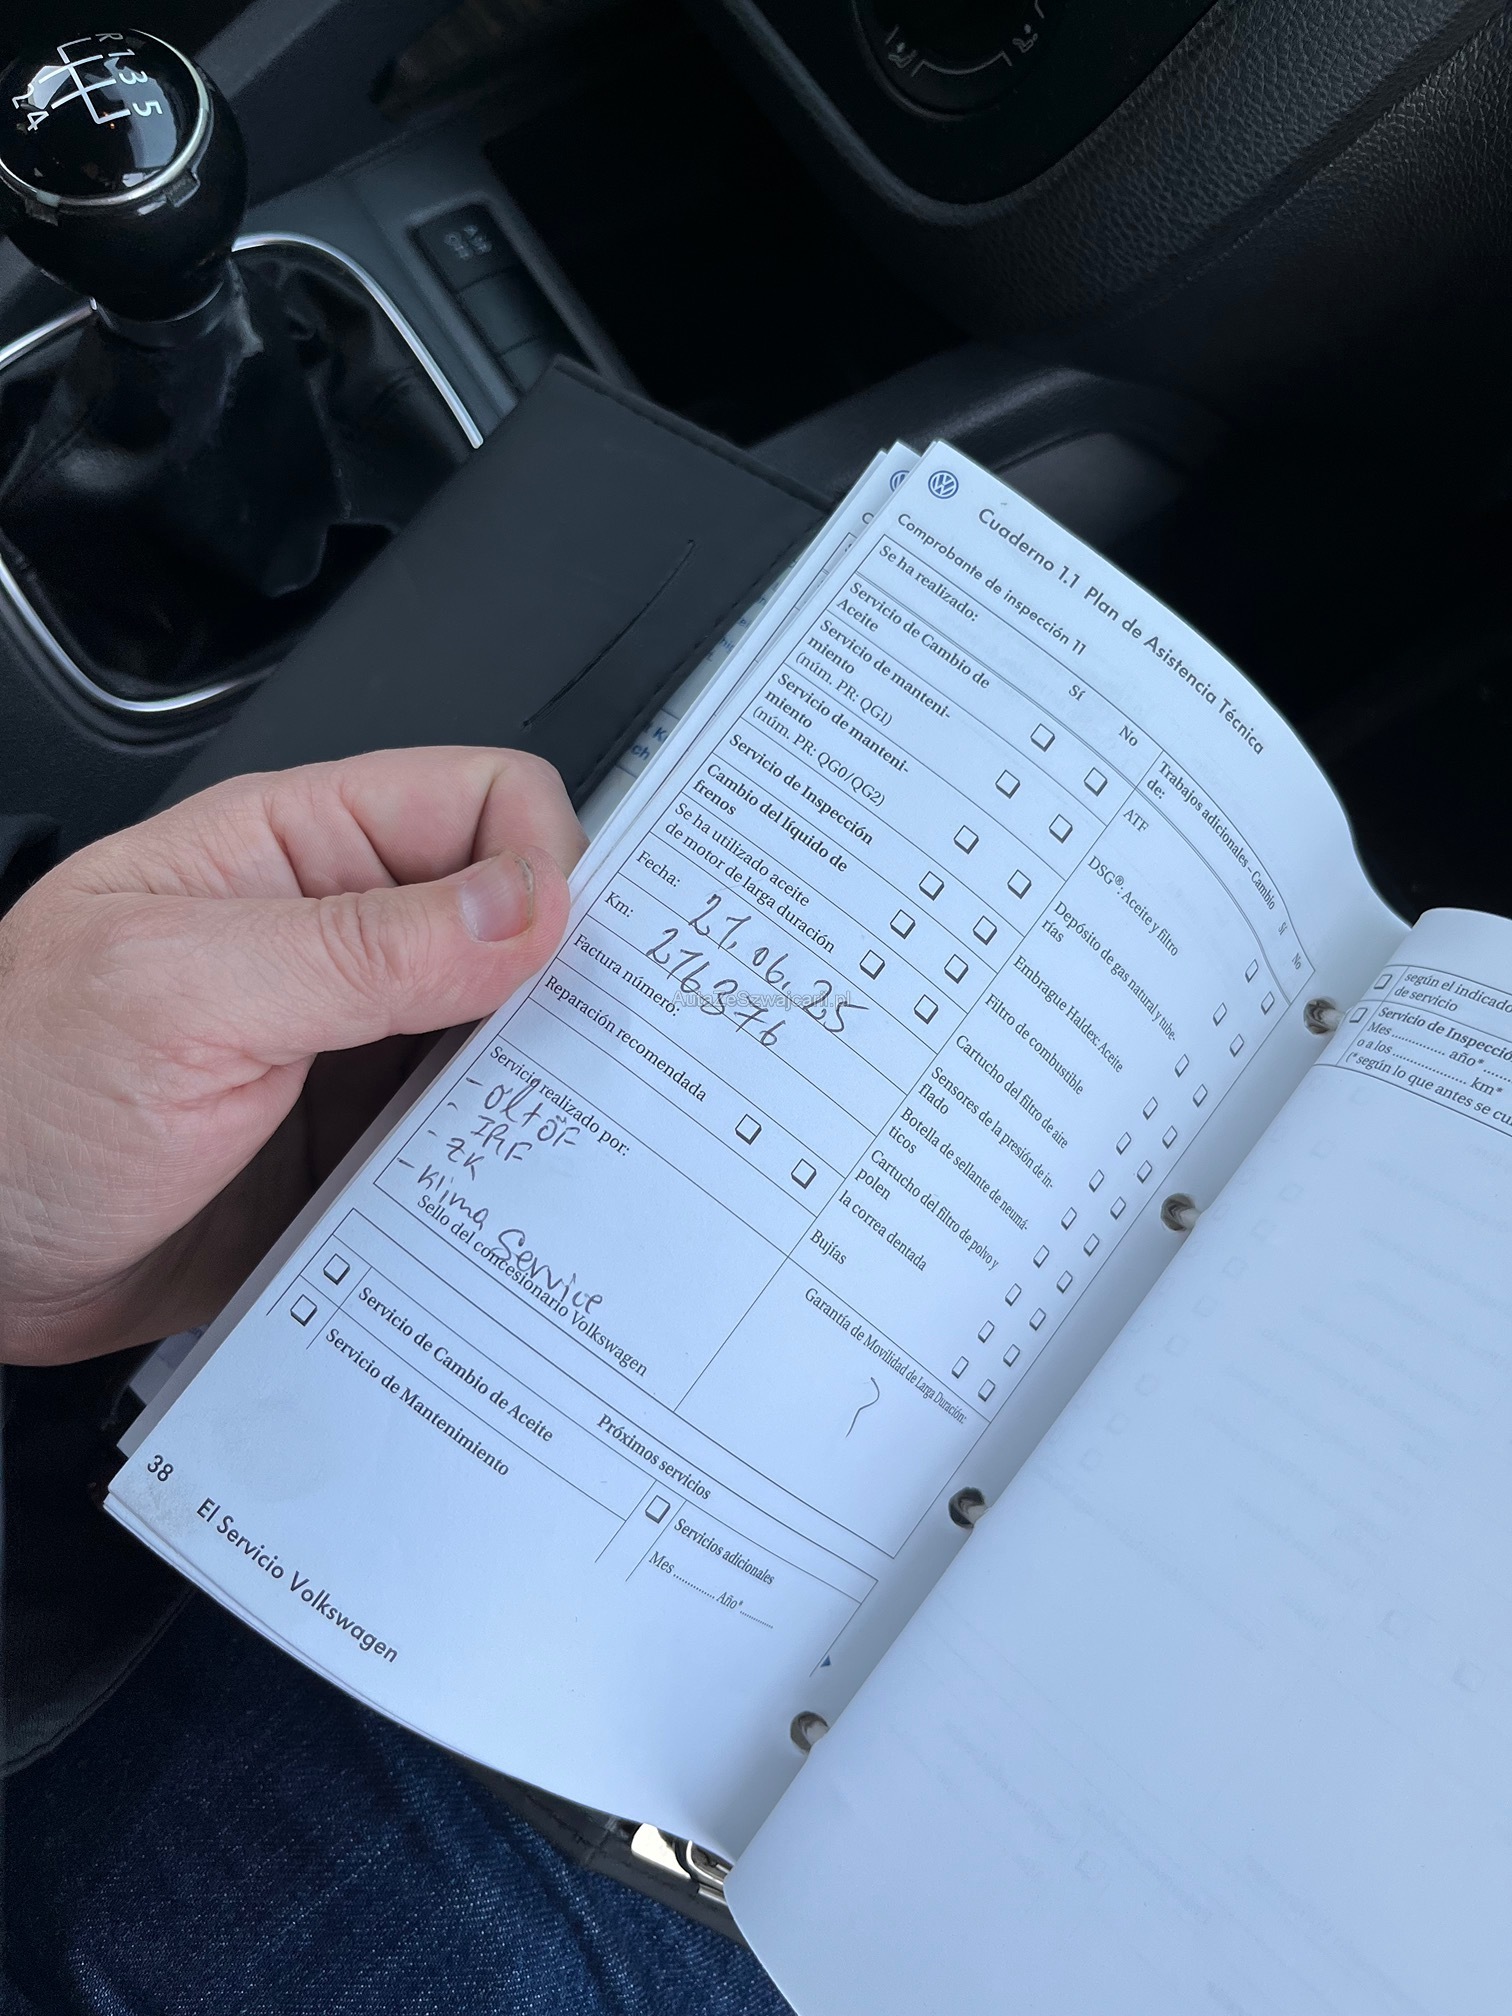 R 1 3 5
2 4
Cuaderno 1.1 Plan de Asistencia Técnica
Comprobante de inspección 11
Se ha realizado:
Sí
No
Servicio de Cambio de
Aceite
Servicio de manteni-
miento
(núm. PR: QG1)
Servicio de manteni-
miento
(núm. PR: QG0/QG2)
Servicio de Inspección
Cambio del líquido de
frenos
Se ha utilizado aceite
de motor de larga duración
Fecha: 27.06.25
Km: 276376
Factura número:
Reparación recomendada
Servicio realizado por:
- Öl + ÖF
- IRF
- ZK
- Klima Service
Sello del concesionario Volkswagen
Trabajos adicionales - Cambio
de:
Sí
No
ATF
DSG®: Aceite y filtro
Depósito de gas natural y tube-
rías
Embrague Haldex: Aceite
Filtro de combustible
Cartucho del filtro de aire
Sensores de la presión de in-
flado
Botella de sellante de neumá-
ticos
Cartucho del filtro de polvo y
polen
la correa dentada
Bujías
Garantía de Movilidad de Larga Duración:
Próximos servicios
Servicio de Cambio de Aceite
Servicio de Mantenimiento
Servicios adicionales
Mes .............. Año* ...........
38
El Servicio Volkswagen
según el indicado
de servicio
Servicio de Inspecció
Mes .............. año* .....
o a los .................... km*
(*según lo que antes se cu
AutaZeSzwajcarii.pl